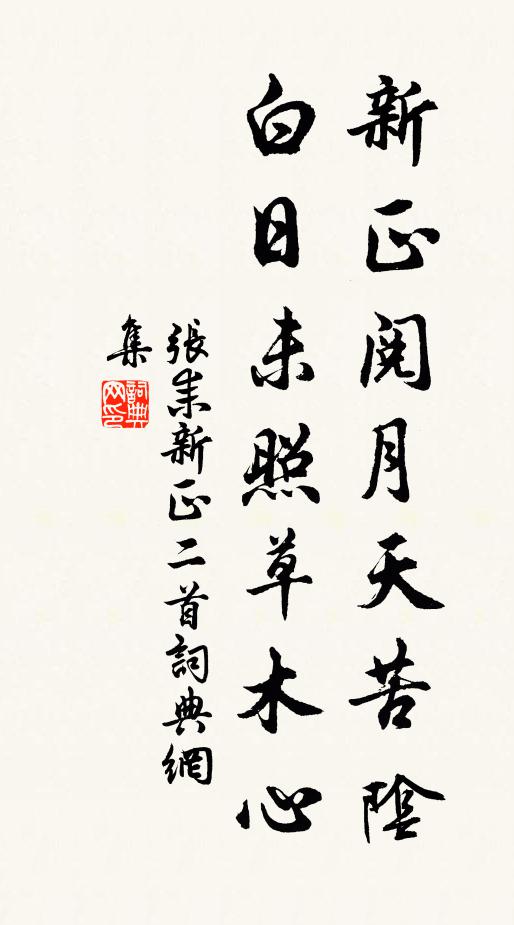 新正閱月天苦陰
白日未照草木心
張耒新正二首詞典網
集
詞典
网印